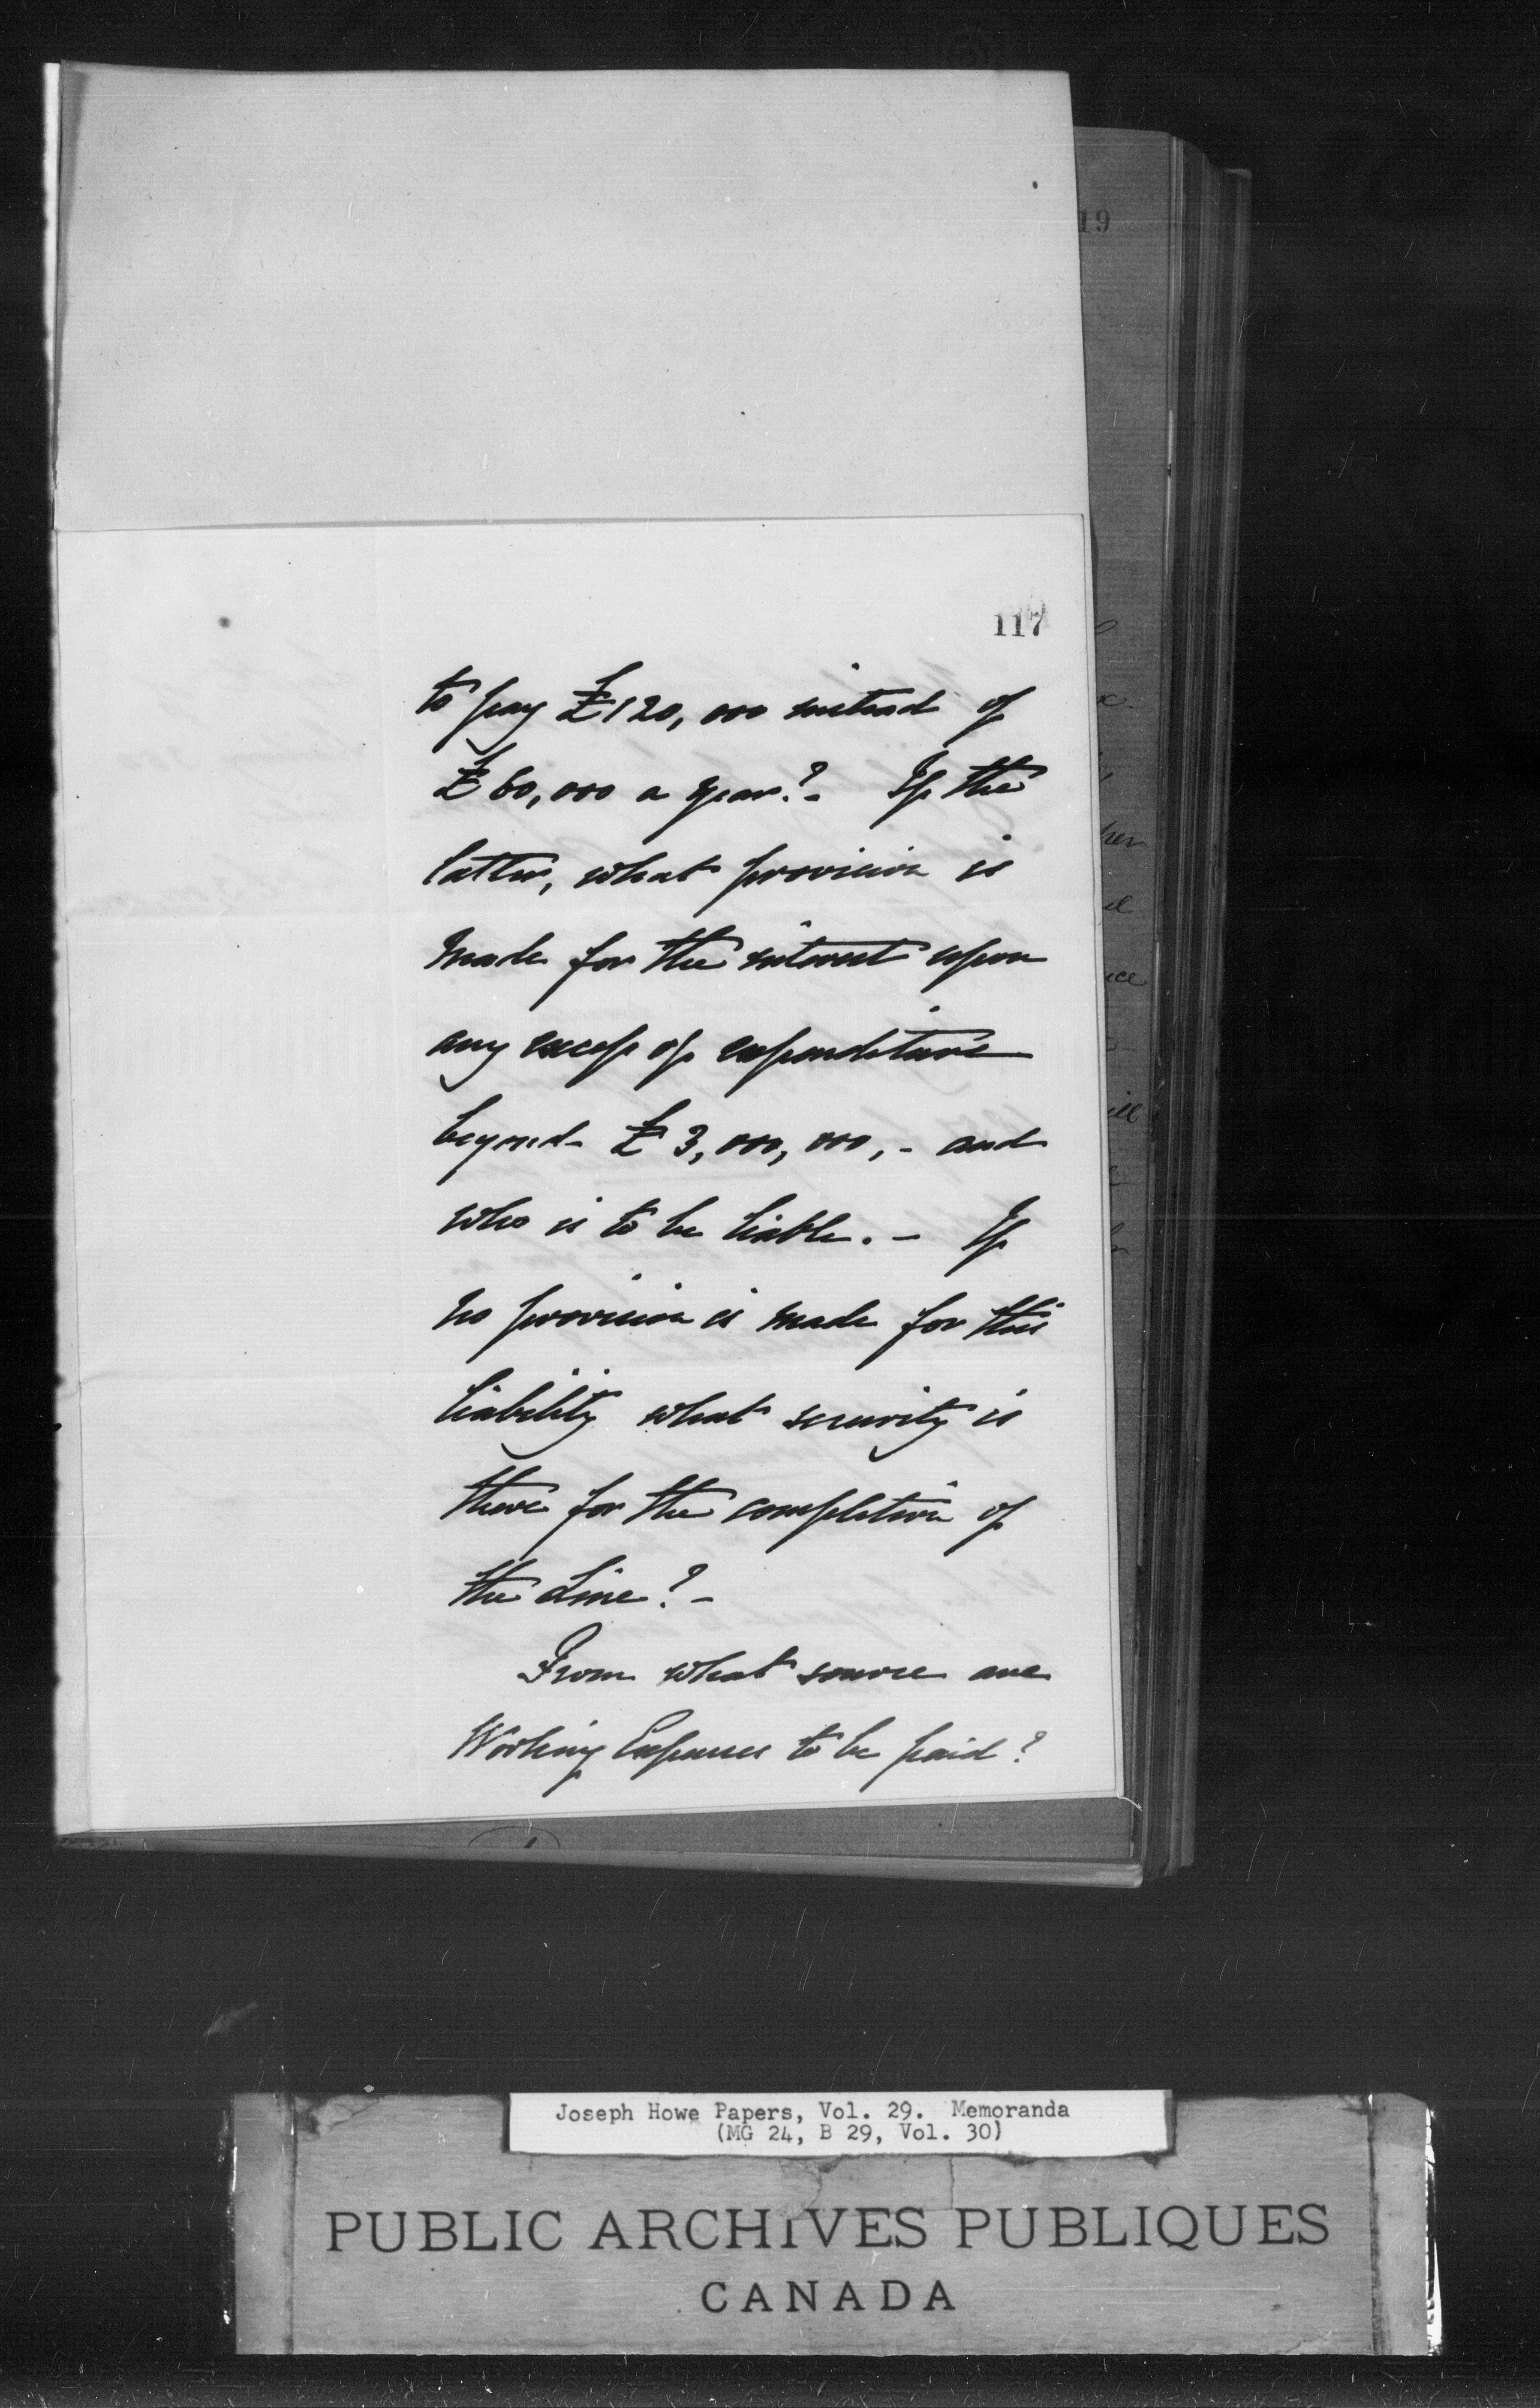 19
117
to pay £120,000 instead of
£60,000 a year?- If the
latter, what provision is
made for the interest upon
any excess of expenditure
beyond £3,000,000,- and
who is to be liable.- If
no provision is made for this
liability what security is
there for the completion of
the Line?-
From what source are
Working Expenses to be paid?
Joseph Howe Papers, Vol. 29. Memoranda
(MG 24, B 29, Vol. 30)
PUBLIC ARCHIVES PUBLIQUES
CANADA